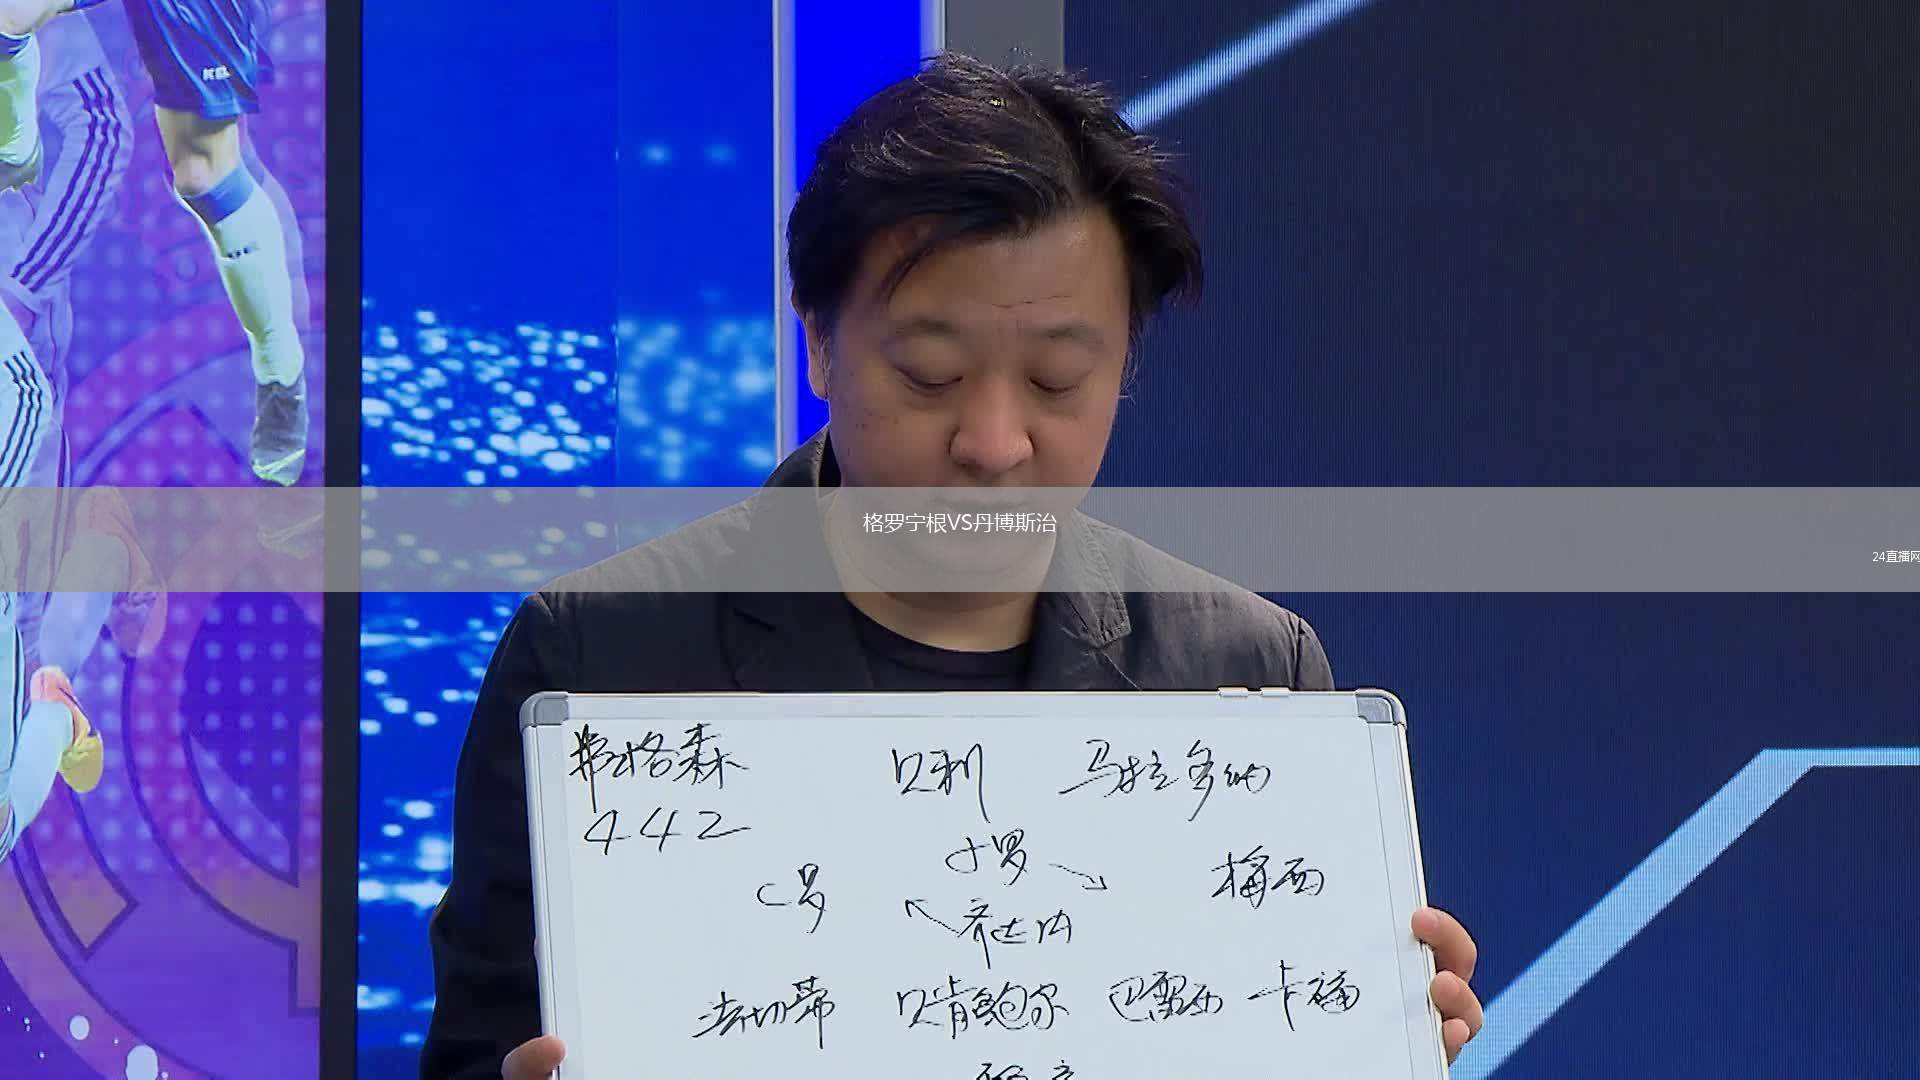 KEL
格罗宁根VS丹博斯治
24直播网
弗格森 贝利 马拉多纳
442
C罗 小罗 梅西
齐达内
法切蒂 贝肯鲍尔 巴雷西 卡福